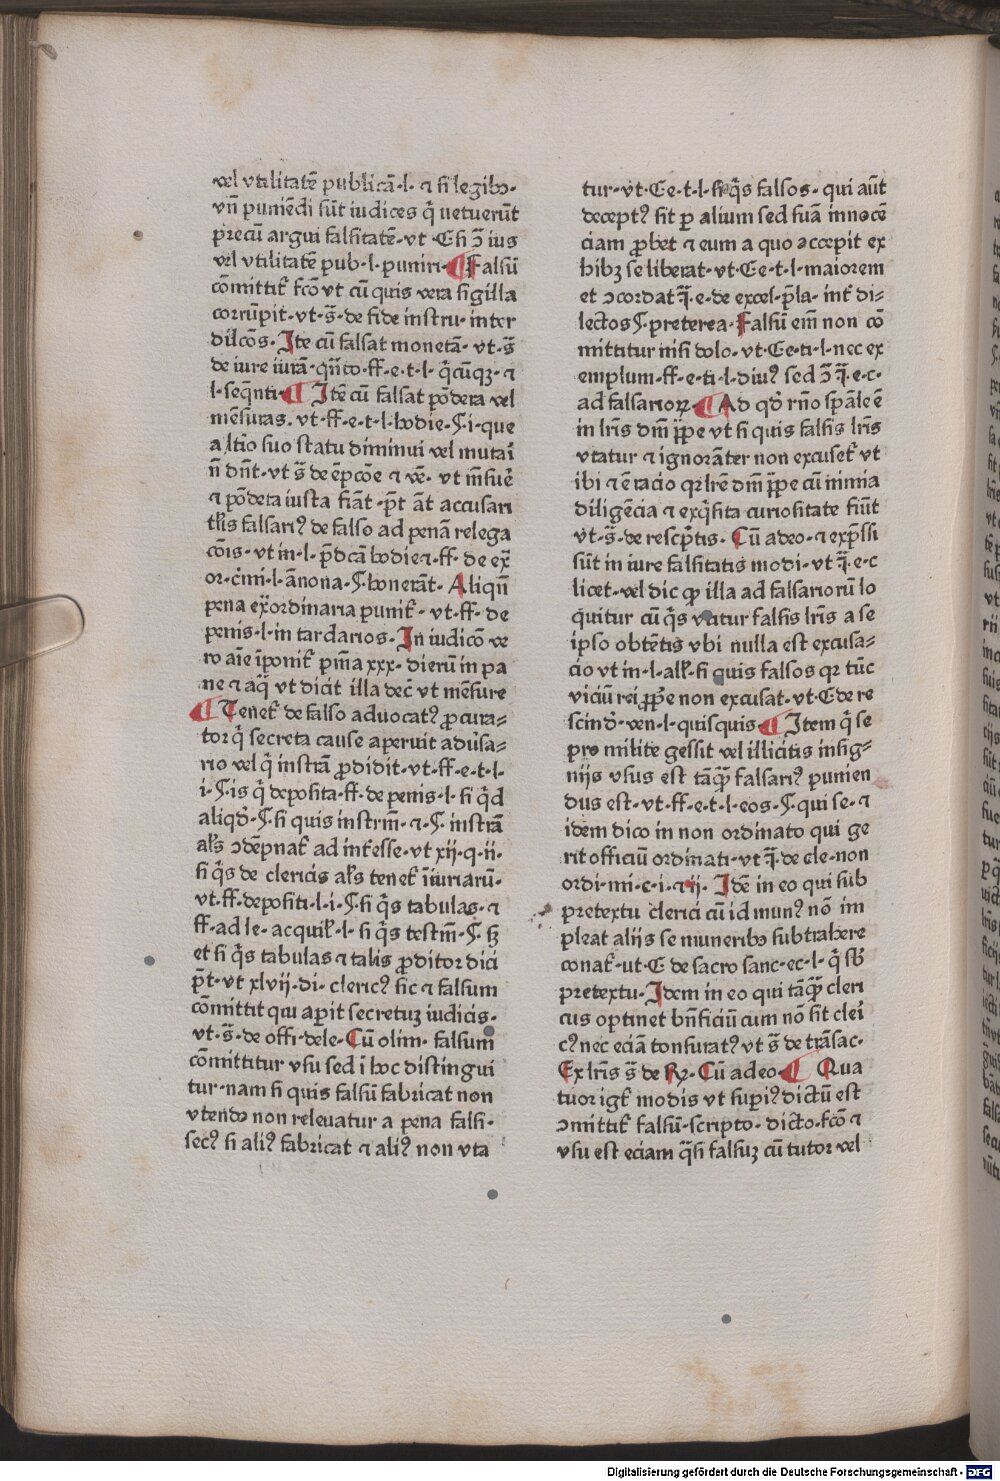 vel vtilitatē publicā·l· ⁊ si legibꝫ·
vn̄ puniēdi sūt iudices q̄ uetuerūt
precū argui falsitatē·vt ·C·si ɔ̄ ius
vel vtilitatē pub·l·puniri·¶Falsū
cōmittiť fcō vt cū quis vera sigilla
corrūpit·vt·s̄·de fide instru·inter
dilcōs·Jtē cū falsat monetā·vt·s̄
de iure iurā·qn̄to·ff·e·t·l·q̄cūqꝫ·⁊
l·seq̄nti·¶Jtē cū falsat pōdera vel
mēsuras·vt·ff·e·t·l·hodie·§·i·que
a ltīo suo statu diminui vel mutaī
n̄ dn̄t·vt s̄ de ēpcōe ⁊ vē·vt mēsuē
⁊ pōdera iusta fiāt·pt āt accusari
tĺis falsariꝰ de falso ad penā relega
cōis·vt in·l·pdcā hodie·⁊·ff·de ex̄
or·cīmi·l·ānona·§·honerāt·Aliqn̄
pena ex̄ordinaria puniť·vt·ff·de
penis·l·in tardarios·Jn iudicō ve
ro aīe īponiť pm̄a xxx·dierū in pa
ne ⁊ aq̄ vt dicit illa dec̄ vt mēsure
¶Teneť de falso aduocatꝰ procura-
tor q̄ secreta cause aperuit adūsa-
rio vel q̄ instrā prodidit·vt·ff·e·t·l·
i·§·is q̄ deposita·ff·de penis·l·si q̄d
aliqd̄·§·si quis instrm̄·⁊·§·instrā
aĺs ɔdēpnať ad inťesse·vt xij·q·ii·
si q̄s de clericis aĺs teneť īiuriarū·
vt·ff·depositi·l·i·§·si q̄s tabulas·⁊
ff·ad le·acquiĺ·l·si q̄s testm̄·§·sꝫ
et si q̄s tabulas ⁊ talis proditor dici
p̄t·vt xlvij·di·clericꝰ sic ⁊ falsum
cōmittit qui apit secretuꝫ iudicis·
vt·s̄·de offi·dele·Cū olim·falsum
cōmittitur vsu sed ī hoc distingui
tur·nam si quis falsū fabricat non
vtendo non releuatur a pena falsi·
secꝰ si aliꝰ fabricat ⁊ aliꝰ non vta
tur·vt·C·e·t·l·si q̄s falsos·qui aūt
deceptꝰ sit p alium sed suā innocē
ciam probet ⁊ eum a quo accepit ex
hibꝫ se liberat·vt·C·e·t·l·maiorem
et ɔcordat q̄·e·de excel·pla·inť di-
lectos §·preterea·Falsū em̄ non cō
mittitur nisi dolo·vt·C·e·ti·l·nec ex
emplum·ff·e·ti·l·diuꝰ sed ɔ̄ q̄·e·c·
ad falsarioꝝ·¶Ad qd̄ rn̄o spāle ē
in lr̄is dm̄ p̄pe vt si quis falsis lr̄is
vtatur ⁊ ignorāter non excuseť vt
ibi ⁊ ē racio qꝛ lr̄e dm̄ p̄pe cū nimia
diligēcia ⁊ exq̄sita curiositate fiūt
vt·s̄·de rescptis·Cū adeo·⁊ expssi
sūt in iure falsitatis modi·vt q̄·e·c
licet·vel dic ꝙ illa ad falsariorū lo
quitur cū q̄s vtitur falsis lr̄is a se
ipso obtētis vbi nulla est excusa-
cio vt in·l·aĺĺ·si quis falsos qꝛ tūc
viciū rei prope non excusat·vt·C·de re
scind̄·ven·l·quisquis·¶Jtem q̄ se
pro milite gessit vel illicitis insig-
nijs vsus est tāq̄ falsariꝰ punien
dus est·vt·ff·e·t·l·eos·§·qui se·⁊
idem dico in non ordinato qui ge
rit officiū ordinati·vt q̄·de cle·non
ordi·mi·c·i·⁊ ij·Jdē in eo qui sub
pretextu clerici cū id munꝰ nō im
pleat alijs se muneribꝫ subtrahere
conať·ut·C·de sacro sanc·ec·l·q̄ sb̄
pretextu·Jdem in eo qui tāq̄ cleri
cus optinet bn̄ficiū cum nō sit clei
cꝰ nec eciā tonsuratꝰ vt s̄ de trāsac·
Ex lr̄is s̄ de ℞·Cū adeo·¶Qua
tuor igť modis vt supiꝰ dictū est
ɔmittiť falsū·scripto·dicto·fcō ⁊
vsu est eciam q̄si falsuꝫ cū tutor vel
Digitalisierung gefördert durch die Deutsche Forschungsgemeinschaft - DFG